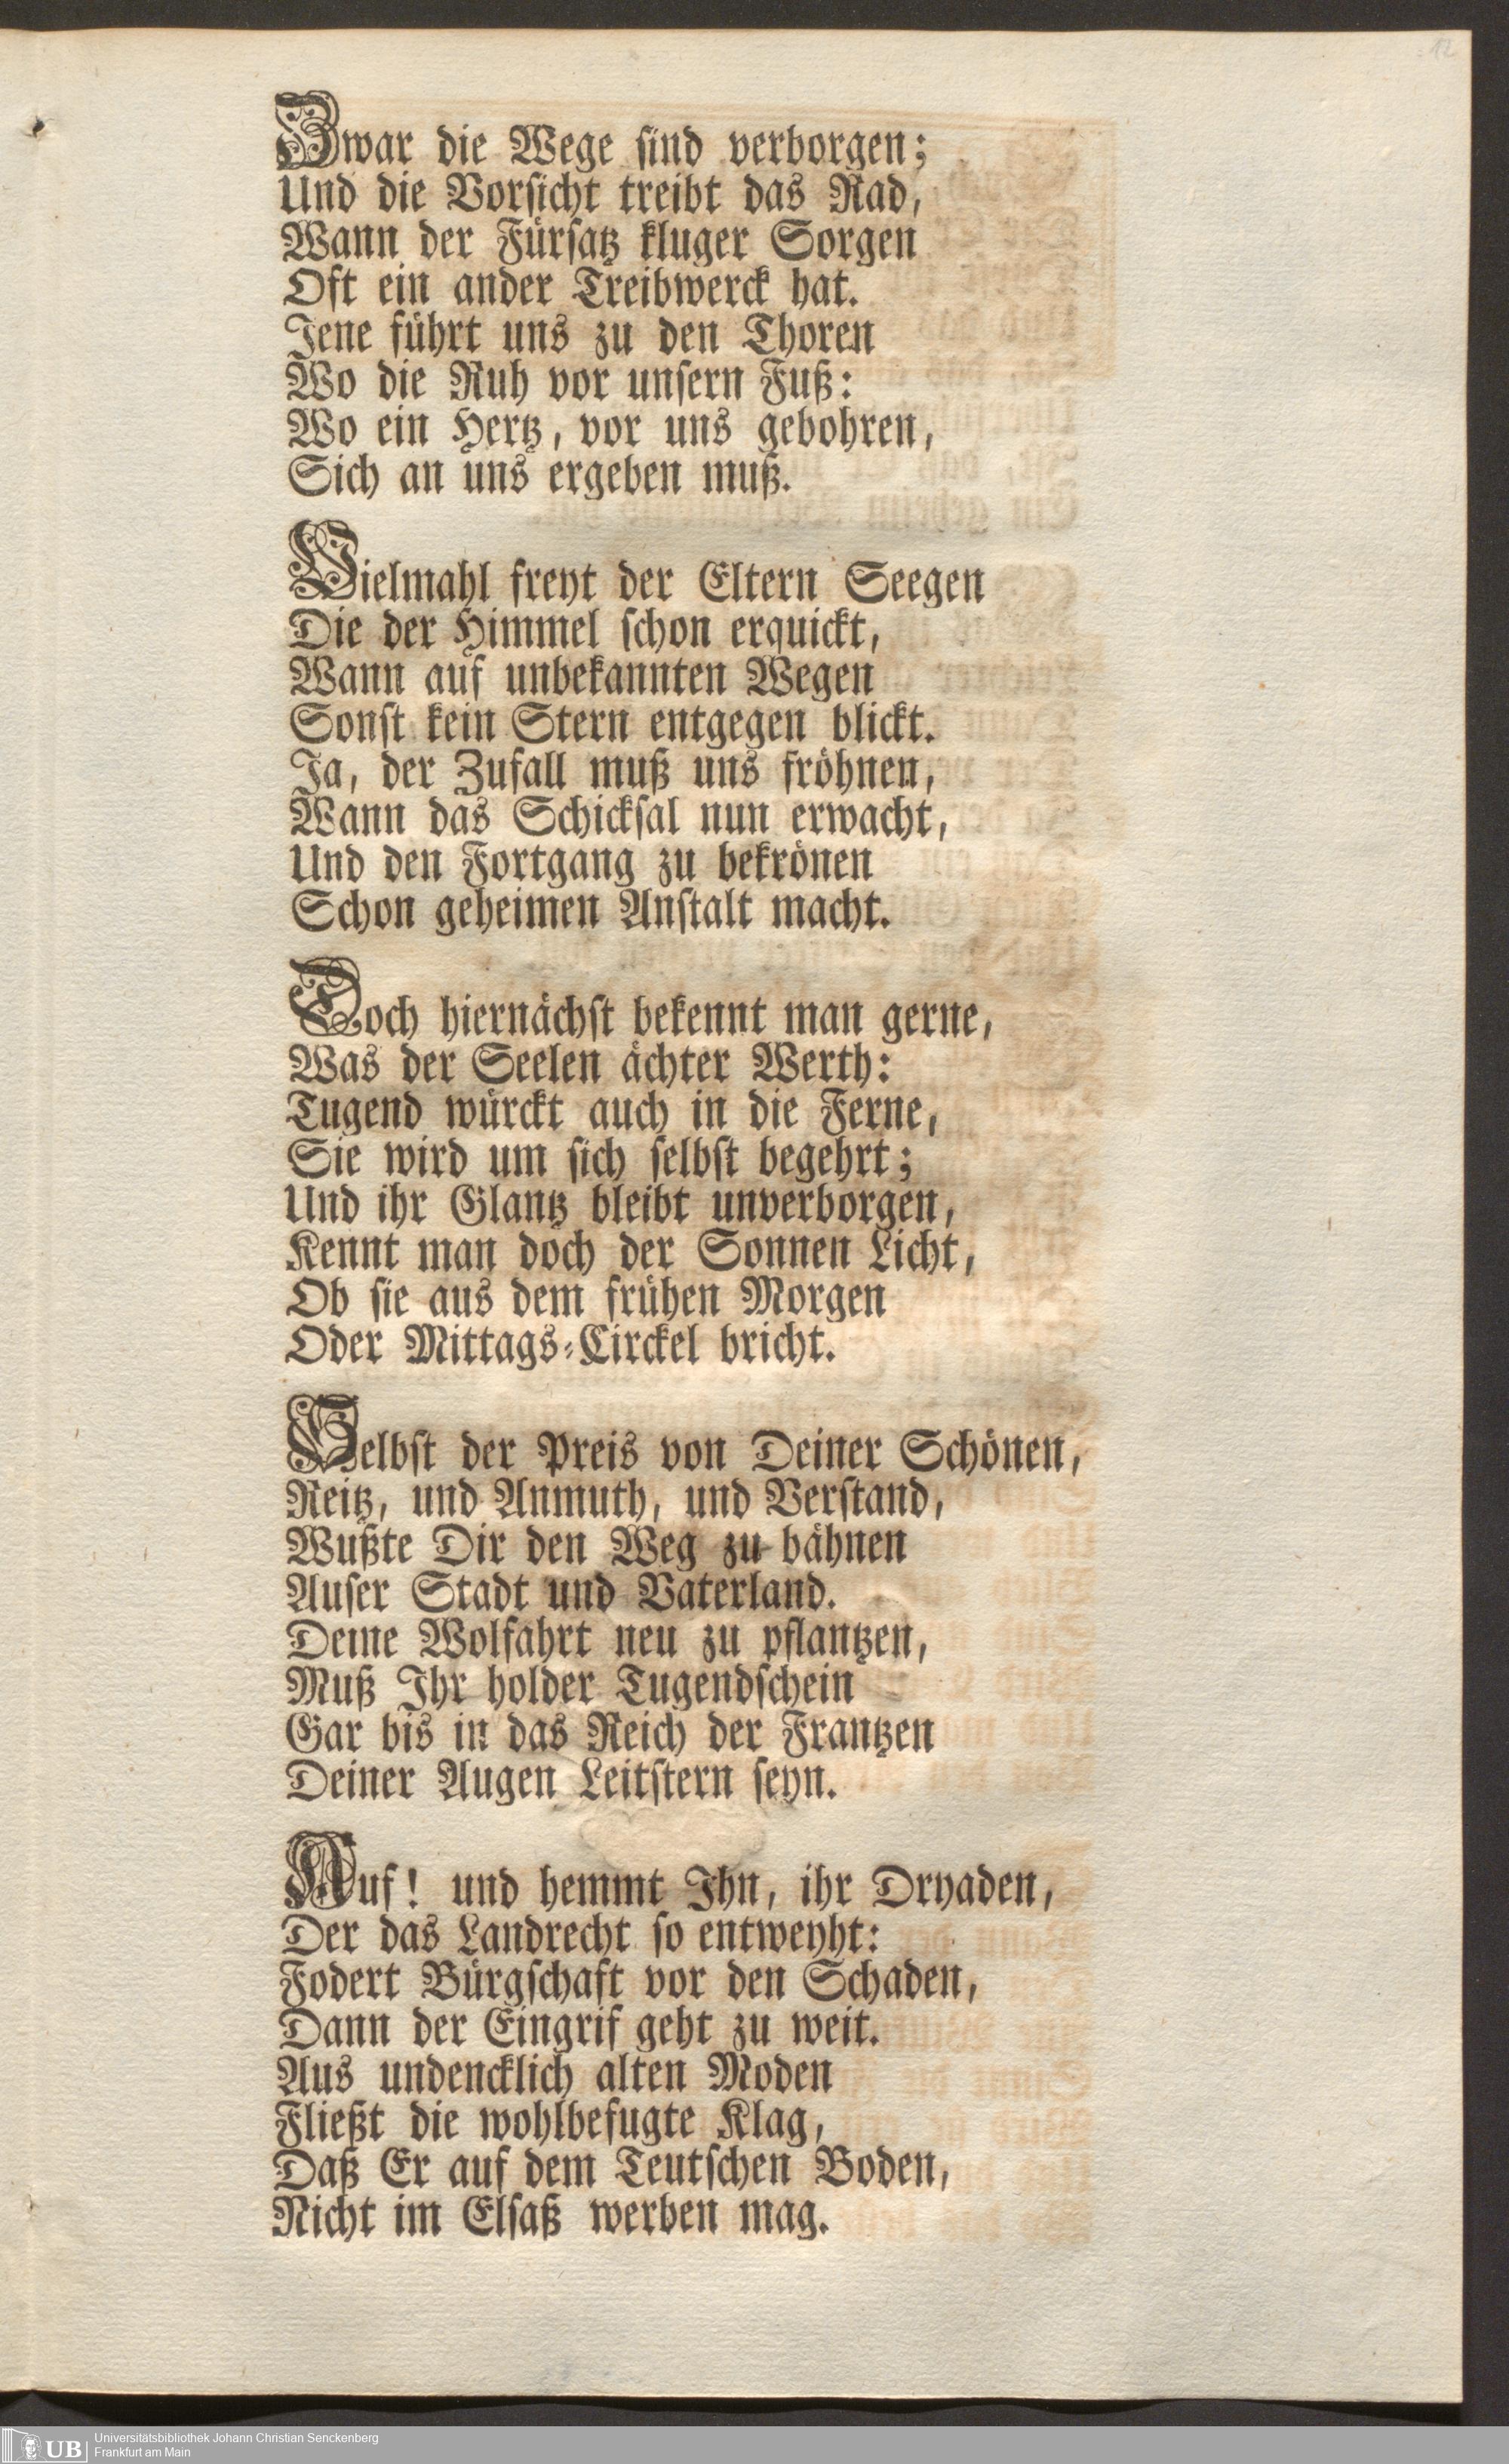 12
Zwar die Wege sind verborgen;
Und die Vorsicht treibt das Rad,
Wann der Fürsatz kluger Sorgen
Oft ein ander Treibwerck hat.
Jene führt uns zu den Thoren
Wo die Ruh vor unsern Fuß:
Wo ein Hertz, vor uns gebohren,
Sich an uns ergeben muß.
Vielmahl freyt der Eltern Seegen
Die der Himmel schon erquickt,
Wann auf unbekannten Wegen
Sonst kein Stern entgegen blickt.
Ja, der Zufall muß uns fröhnen,
Wann das Schicksal nun erwacht,
Und den Fortgang zu bekrönen
Schon geheimen Anstalt macht.
Doch hiernächst bekennt man gerne,
Was der Seelen ächter Werth:
Tugend würckt auch in die Ferne,
Sie wird um sich selbst begehrt;
Und ihr Glantz bleibt unverborgen,
Kennt man doch der Sonnen Licht,
Ob sie aus dem frühen Morgen
Oder Mittags-Circkel bricht.
Selbst der Preis von Deiner Schönen,
Reitz, und Anmuth, und Verstand,
Wußte Dir den Weg zu bähnen
Auser Stadt und Vaterland.
Deine Wolfahrt neu zu pflantzen,
Muß Ihr holder Tugendschein
Gar bis in das Reich der Frantzen
Deiner Augen Leitstern seyn.
Auf! und hemmt Ihn, ihr Dryaden,
Der das Landrecht so entweyht:
Fodert Bürgschaft vor den Schaden,
Dann der Eingrif geht zu weit.
Aus undencklich alten Moden
Fließt die wohlbefugte Klag,
Daß Er auf dem Teutschen Boden,
Nicht im Elsaß werben mag.
UB
Universitätsbibliothek Johann Christian Senckenberg
Frankfurt am Main